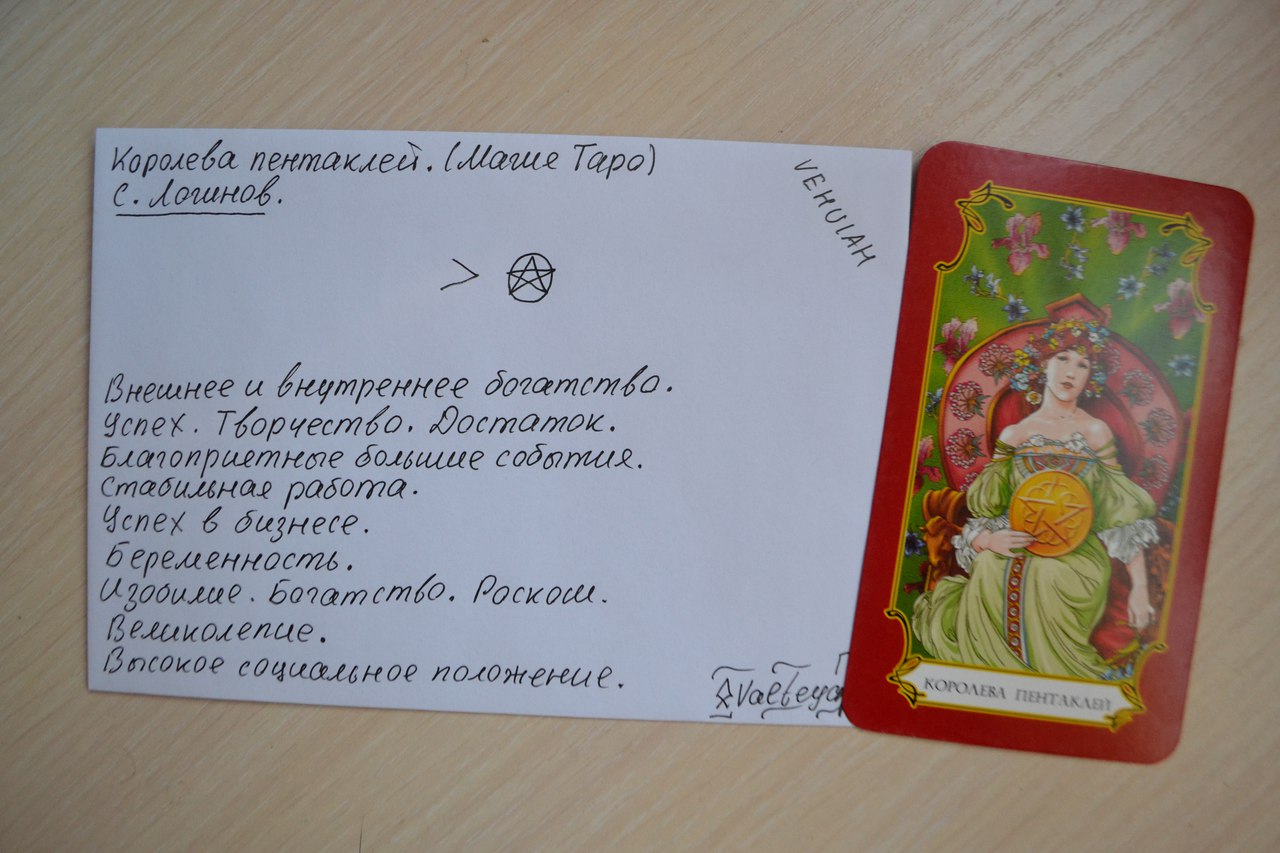 Королева пентаклей. (Магие Таро)
С. Логинов.
VEHUIAH
Внешнее и внутреннее богатство.
Успех. Творчество. Достаток.
Благоприетные большие события.
Стабильная работа.
Успех в бизнесе.
Беременность.
Изобилие. Богатство. Роскош.
Великолепие.
Высокое социальное положение.
КОРОЛЕВА ПЕНТАКЛЕЙ